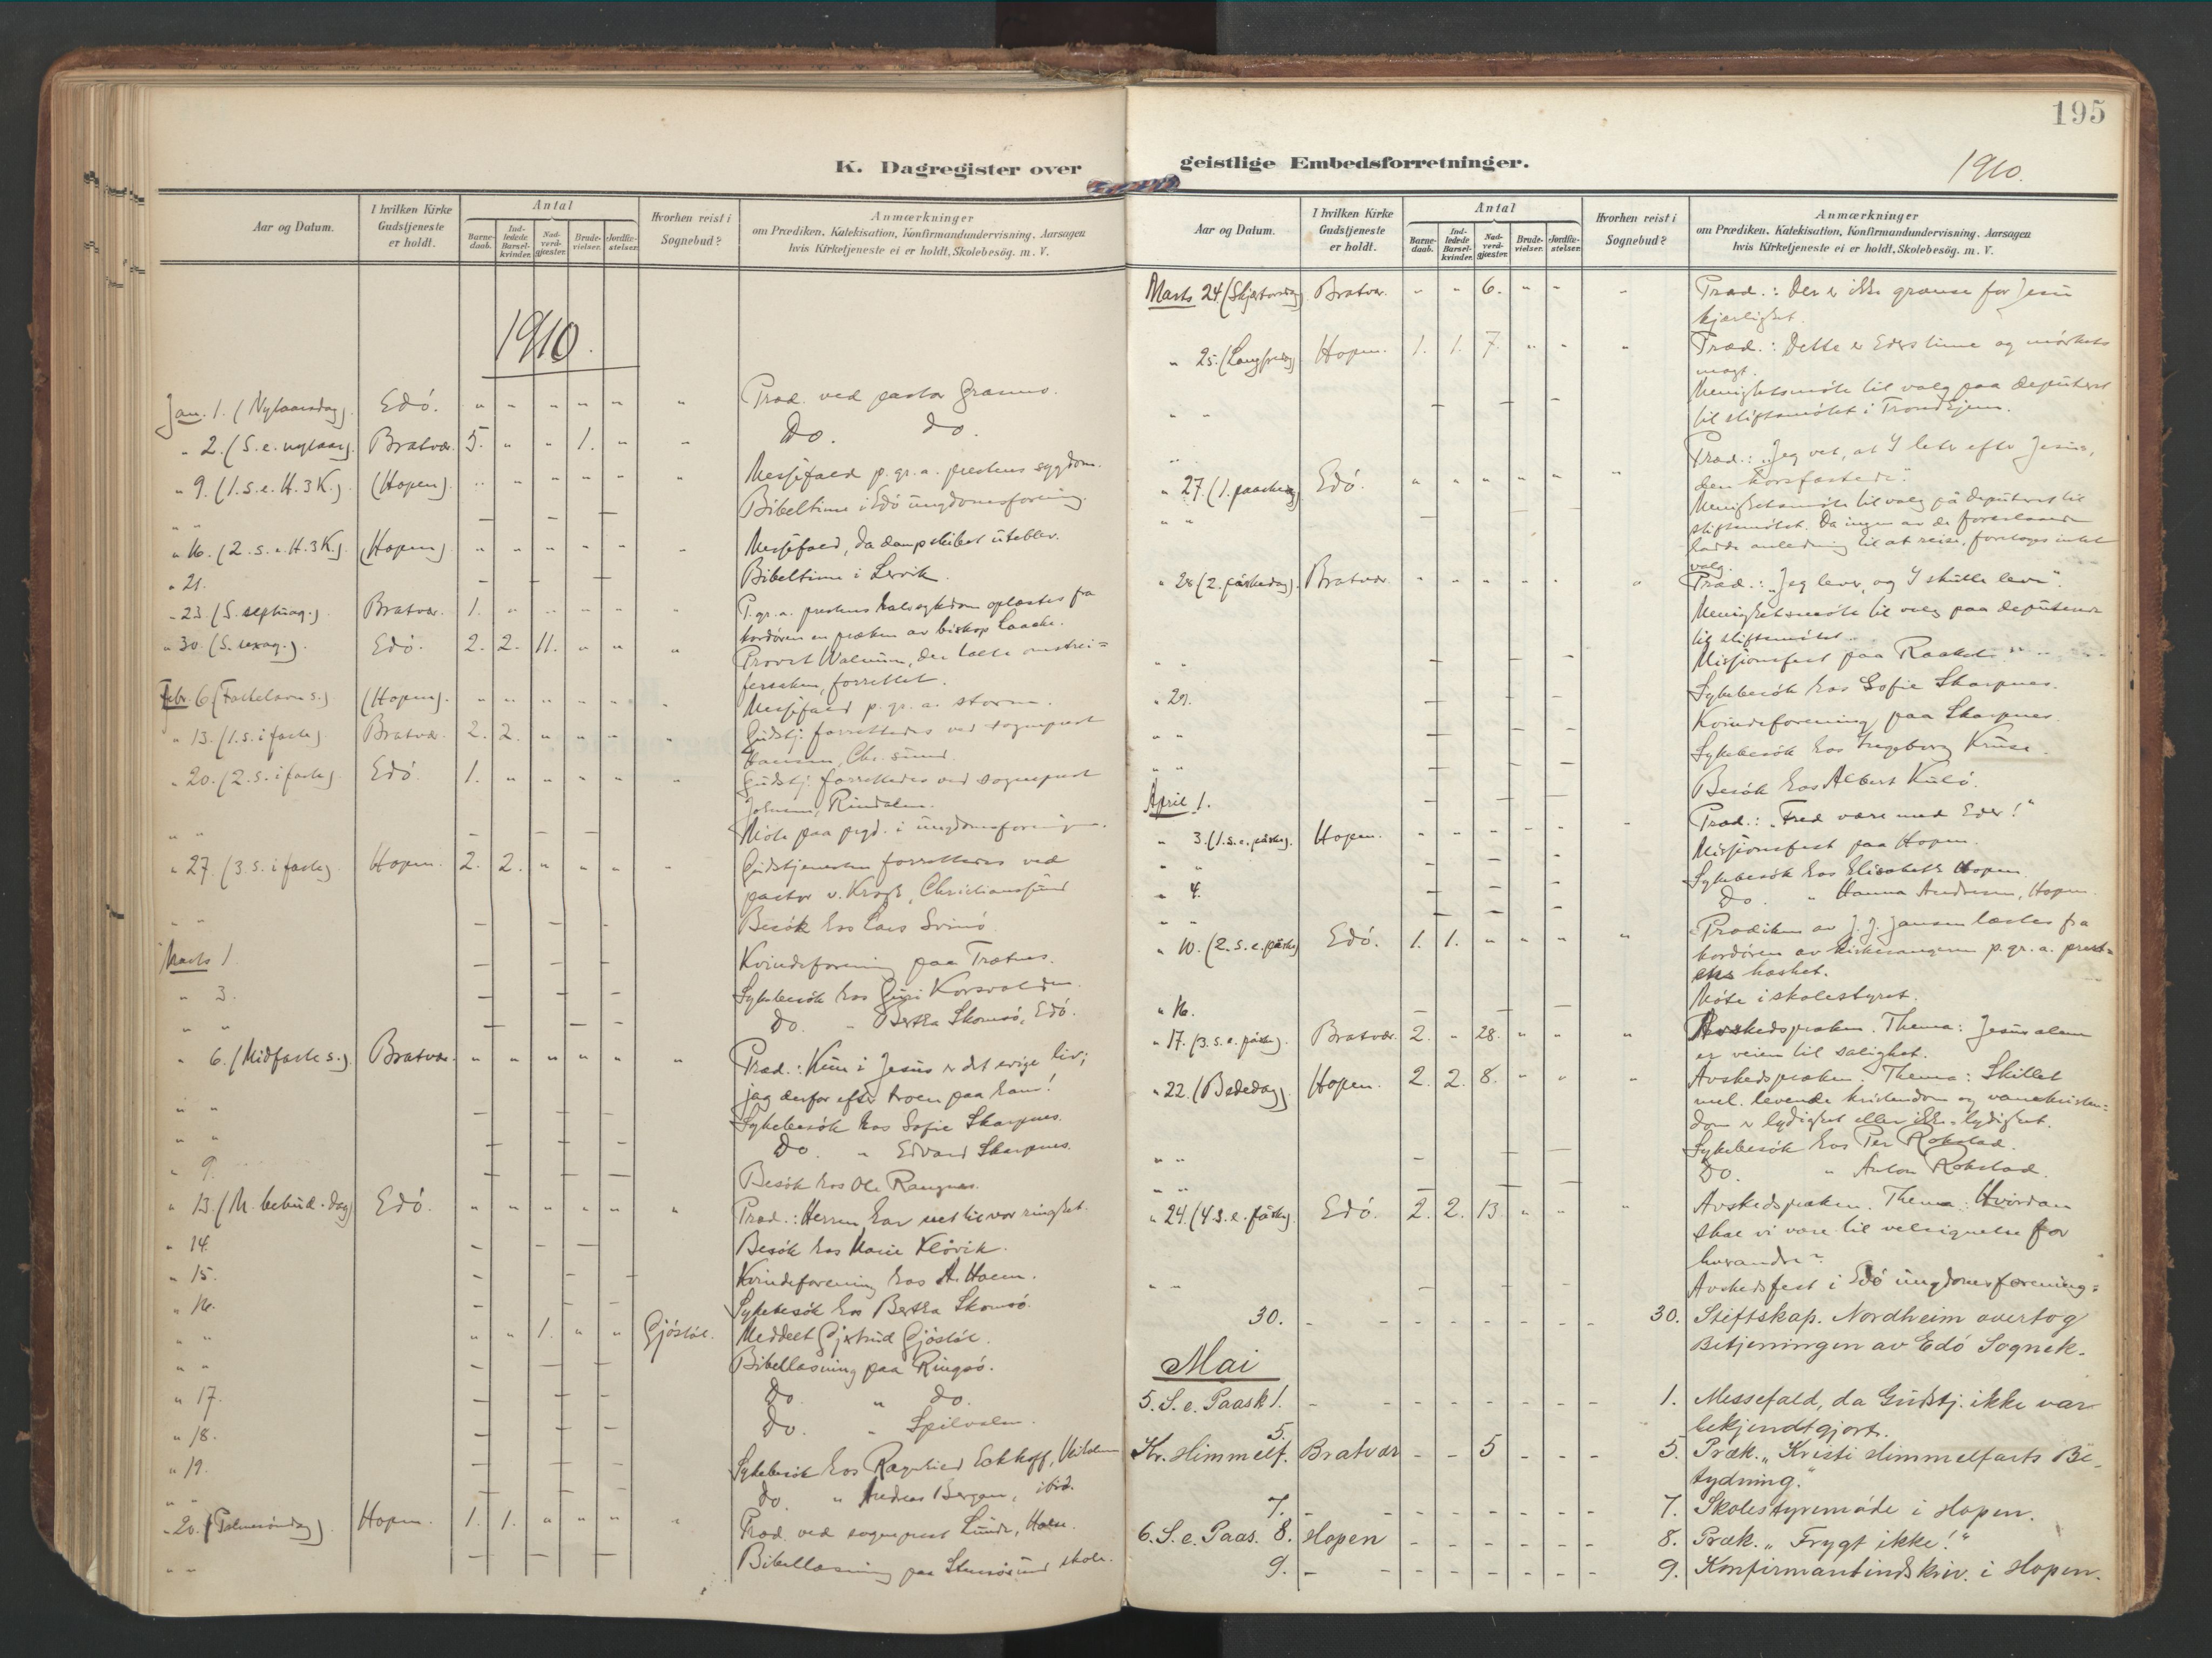 195
K. Dagregister over geistlige Embedsforretninger.
1910.
Aar og Datum.
I hvilken Kirke Gudstjeneste er holdt.
Antal
Barne-daab.
Ind-ledede Barsel-kvinder.
Nad-verd-gjæster.
Brude-vielser.
Jordfæ-stelser.
Hvorhen reist i Sognebud?
Anmærkninger
om Prædiken, Katekisation, Konfirmandundervisning, Aarsagen
hvis Kirketjeneste ei er holdt, Skolebesög. m. V.
1910.
Jan. 1. (Nytaarsdag). Edö. " " " " " " Præd. ved pastor Grasmo.
" 2. (S. e. nytaar). Bratvær. 5. " " 1. " " Do. do.
" 9. (1. s. e. H. 3 K.). (Hopen). " " " " " " Messefald p. gr. a. prestens sygdom.
" " Bibeltime i Edö ungdomsforening.
" 16. (2. s. e. H. 3 K.). (Hopen). " " " " " " Messefald, da dampskibet uteblev.
" 21. Bibeltime i Lervik.
" 23. (S. septuag.). Bratvær. 1. " " " " " P. gr. a. prestens halssykdom oplæstes fra
kordören en præken av biskop Laache.
" 30. (S. sexag.). Edö. 2. 2. 11. " " " Provst Walnum, der holdt
forrettet.
Febr. 6 (Fastelavns s.) (Hopen). " " " " " " Messefald p. gr. a. storm.
" 13. (1. s. i faste). Bratvær. 2. 2. " " " " Gudstj. forrettedes ved sogneprest
Hansen, Chr.sund.
" 20. (2. s. i faste). Edö. 1. " " " " " Gudstj. forrettedes ved sogneprest
Rindalen.
" " Möte paa prgd. i ungdomsforeningen.
" 27. (3. s. i faste). Hopen. 2. 2. " " " " Gudstjenesten forrettedes ved
pastor v. Krogh, Christianssund
" " Besök hos Lars Svinö.
Marts 1. Kvindeforening paa Trætnes.
" 3. Sykebesök hos Guri Korsvolden.
" " Do. " Bertha Skomsö, Edö.
" 6. (Midfaste s.). Bratvær. " " " " " " Præd.: Kun i Jesus er det evige liv;
jag derfor efter troen paa ham!
" " Sykebesök hos Sofie Skarpnes.
" " Do. " Edvard Skarpnes.
" 9. Besök hos Ole Rangnes.
" 13. (M. bebud. dag) Edö. " " " " " " Præd.: Herren har set til vor ringhet.
" 14. Besök hos Marie Klövik.
" 15. Kvindeforening hos A. Hoem.
" 16. Sykebesök hos Bertha Skomsö.
" " " " 1. " " Gjöstöl. Meddelt Gjertrud Gjöstöl.
" " Bibellæsning paa Ringsö.
" 17. Do. " do.
" 18. Do. " Spilvolen.
" 19. Sykebesök hos Ragnhild Eckhoff,
" " Do. " Andreas Bergem, ibid.
" 20. (Palmesöndag). Hopen. 1. 1. " " " " Præd. ved sogneprest Lunde,
" " Bibellæsning paa skole.
Marts 24 (Skjærtorsdag) Bratvær. " " 6. " " " Præd.: Der er ikke grænse for Jesu
kjærlighet.
" 25. (Langfredag) Hopen. 1. 1. 7. " " " Præd.: Dette er Eders time og mørkets
magt.
" " Menighetsmöte til valg paa deputeret
til stiftsmötet i Trondhjem.
" 27. (1. paaskedag) Edö. " " " " " " Præd.: "Jeg vet, at I leter efter Jesus,
den korsfæstede."
" " Menighetsmöte til valg på deputeret til
stiftsmötet. Da ingen av de foreslaaede
hadde anledning til at reise, foretoges intet
valg.
" 28 (2. påskedag). Bratvær. " " " " " " Præd.: "Jeg lever, og I skulle leve".
Menighetsmöte til valg paa deputerede
til stiftsmötet.
" " Missjonsfest paa
" 29. Sykebesök hos Sofie Skarpnes.
" " Kvindeforening paa Skarpnes.
" " Sykebesök hos Ingeborg Kruse.
April 1. Besök hos Albert Kulö.
" 3. (1. s. e. påske). Hopen. " Præd.: "Fred være med Eder!"
" " Missjonsfest paa Hopen.
" 4. Sykebesök hos Elisabeth Hopen.
" " Do. " Hanna Andresen, Hopen.
" 10. (2. s. e. påske) Edö. 1. 1. " " " " Prædiken av J. J. Jansen læstes fra
kordören av kirkesangeren p. gr. a. prest=
ens hæshet.
" 16. Möte i skolestyret.
" 17. (3. s. e. påske). Bratvær. 2. " 28. " " " Avskedspræken. Thema: Jesus alene
er veien til salighet.
" 22. (Bededag). Hopen. 2. 2. 8. " " " Avskedspræken. Thema: Skillet
mel. levende kristendom og vanekristen=
dom er lydighet eller ikke-lydighet.
" " Sykebesök hos Per Rokstad.
" " Do. " Anton Rokstad.
" 24. (4. s. e. påske). Edö. 2. 2. 13 " " " Avskedspræken. Thema: Hvordan
skal vi være til velsignelse for
hverandre?
" " Avskedsfest i Edö ungdomsforening.
30. - - - - - - 30. Stiftskap. Nordheim overtog
Betjeningen av Edö Sognek.
Mai
5. S. e. Paask 1. - - - - - - - 1. Messefald, da Gudstj. ikke var
bekjendtgjort.
Kr. Himmelf. 5. Bratvær - - 5 - - - 5. Præk. "Kristi Himmelfarts Be-
tydning."
7. - - - - - - - 7. Skolestyremöde i Hopen.
6. S. e. Paas. 8. Hopen - - - - - - 8. Præk. "Frygt ikke!"
9. - - - - - - - 9. Konfirmantindskriv. i Hopen.